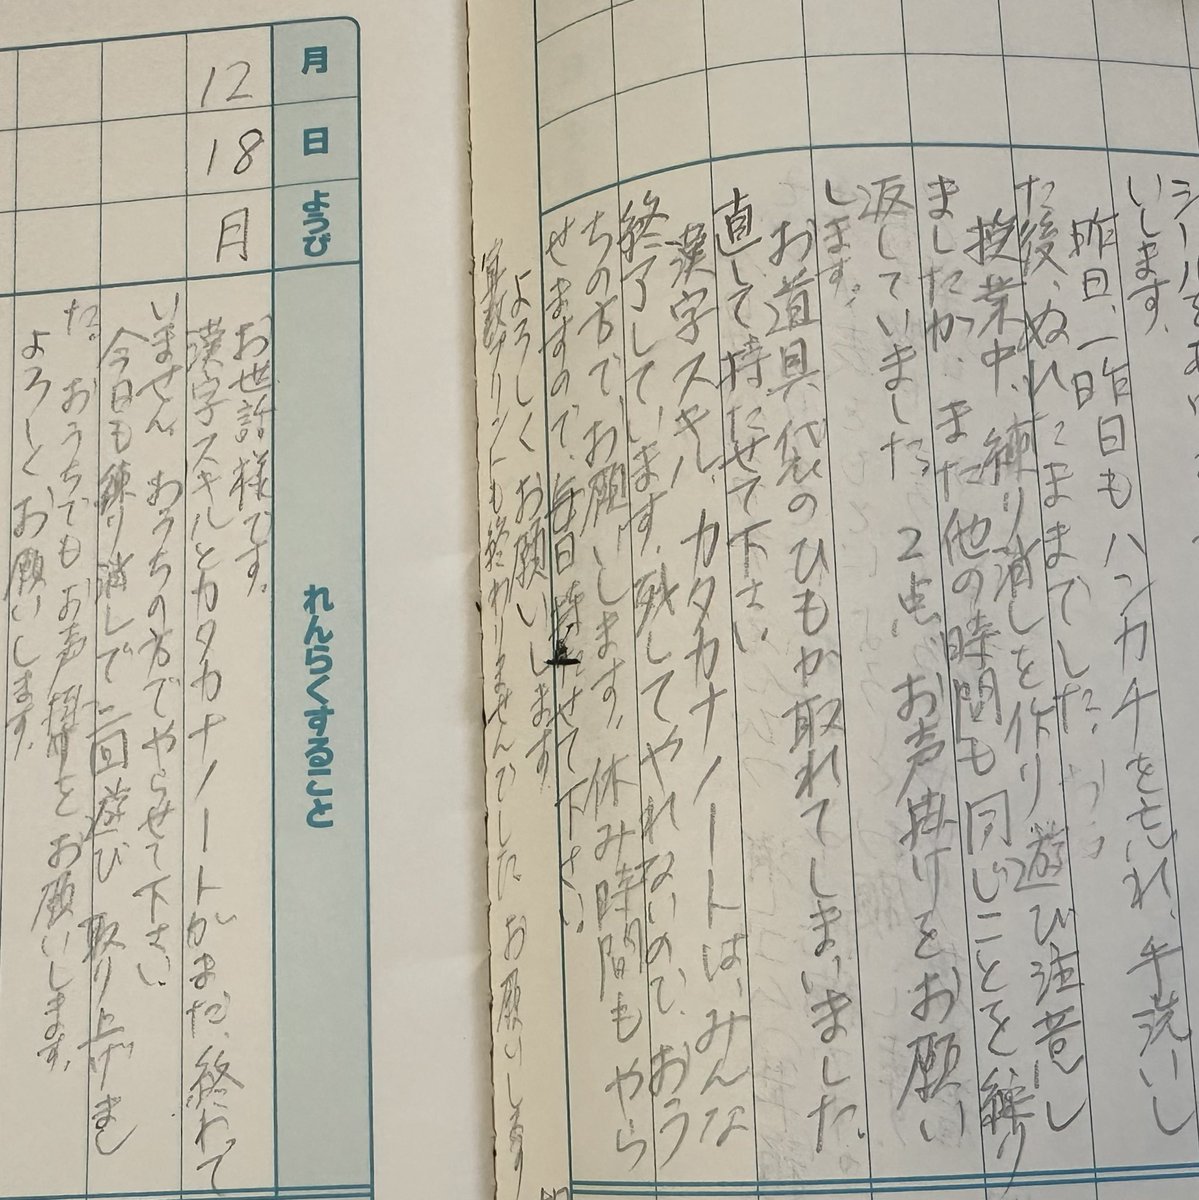 いします。
昨日、一昨日もハンカチを忘れ、手洗いし
た後、ぬれたままでした。
授業中、練り消しを作り遊び注意し
ましたが、また他の時間も同じことを繰り
返していました。2点、お声掛けをお願い
します。
お道具袋のひもが取れてしまいました。
直して持たせて下さい
漢字スキル、カタカナノートは、みんな
終了しています。残してやれないので、おう
ちの方で、お願いします。休み時間もやら
せますので、毎日持たせて下さい。
よろしくお願いします。
算数プリントも終わりませんでした。お願いします
月 日 ようび れんらくすること
12 18 月
お世話様です。
漢字スキルとカタカナノートがまだ、終わって
いません。おうちの方でやらせて下さい。
今日も練り消しで二回遊び 取り上げまし
た。おうちでもお声掛けをお願いします。
よろしくお願いします。